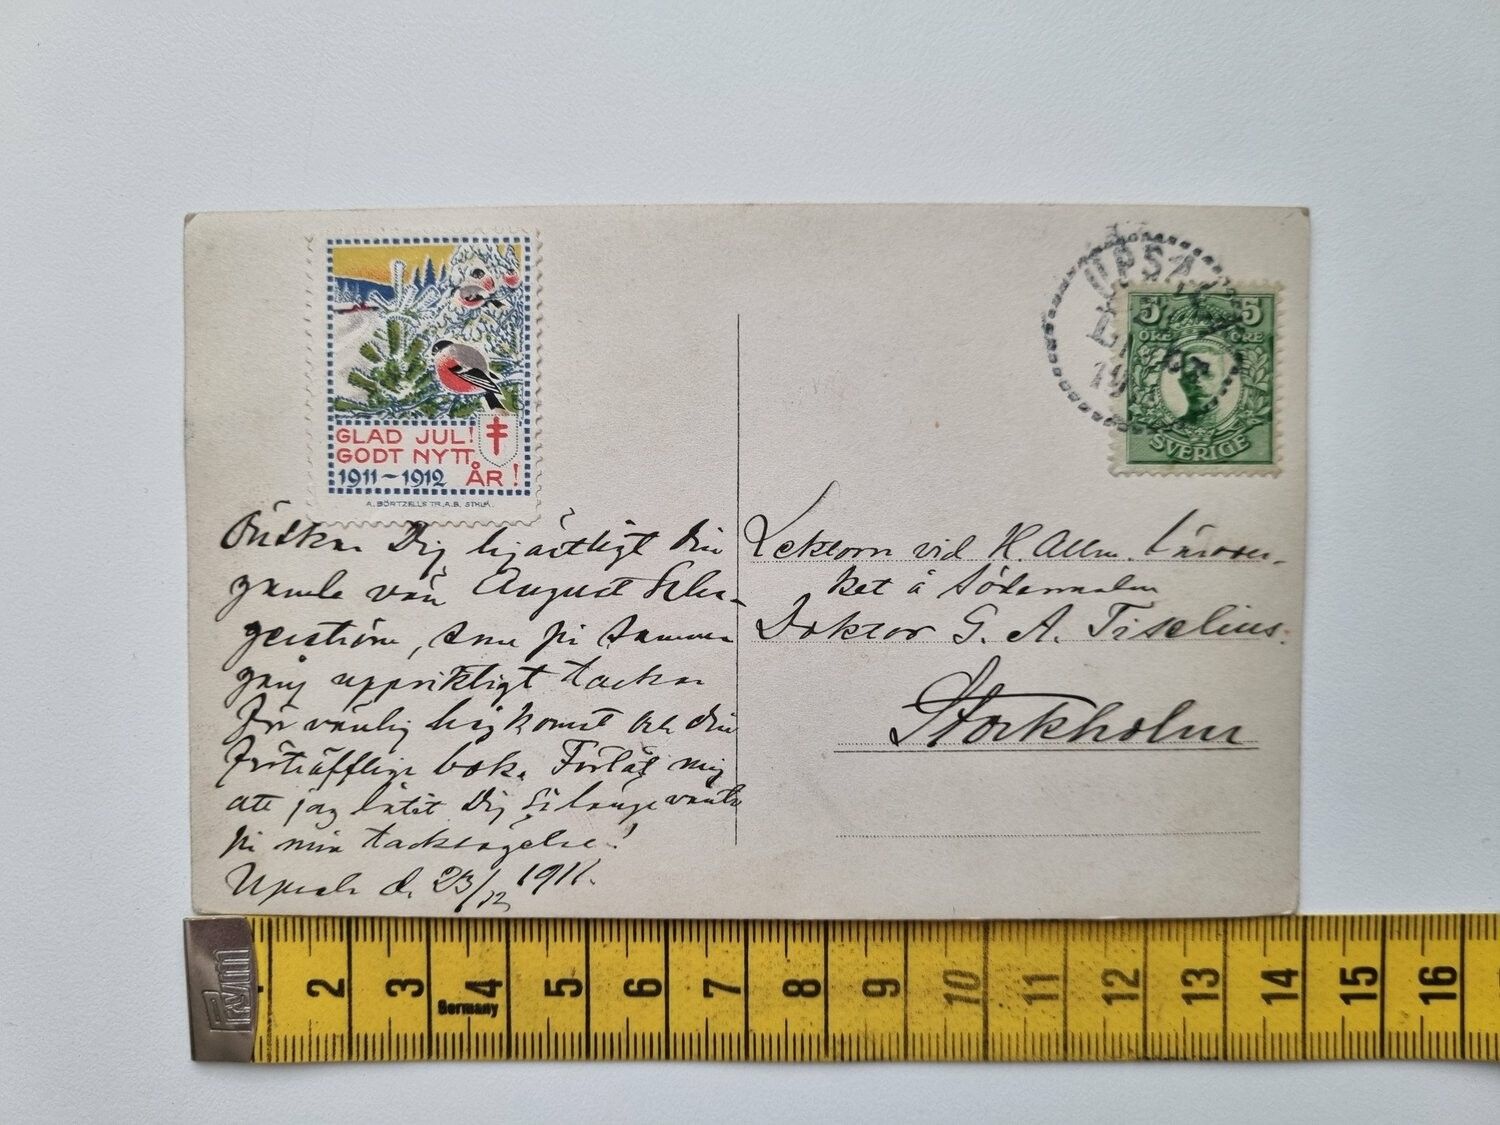 GLAD JUL!
GODT NYTT
1911-1912 ÅR!
A. BÖRTZELLS TR. A.B. STHLM.
Önskar Dig hjärtligt din
gamle vän August
som på samma
gång uppriktigt tackar
för vänlig hågkomst och din
förträfflige bok. Förlåt mig
att jag låtit Dig så länge vänta
på min tacksägelse!
Upsala d. 23/12 1911.
UPSA
19
5 5
ÖRE ÖRE
SVERIGE
Lektorn vid H. Allm. Lärover-
ket å Södermalm
Doktor G. A. Tiselius.
Stockholm
Prym
2 3 4 5 6 7 8 9 10 11 12 13 14 15 16
Germany